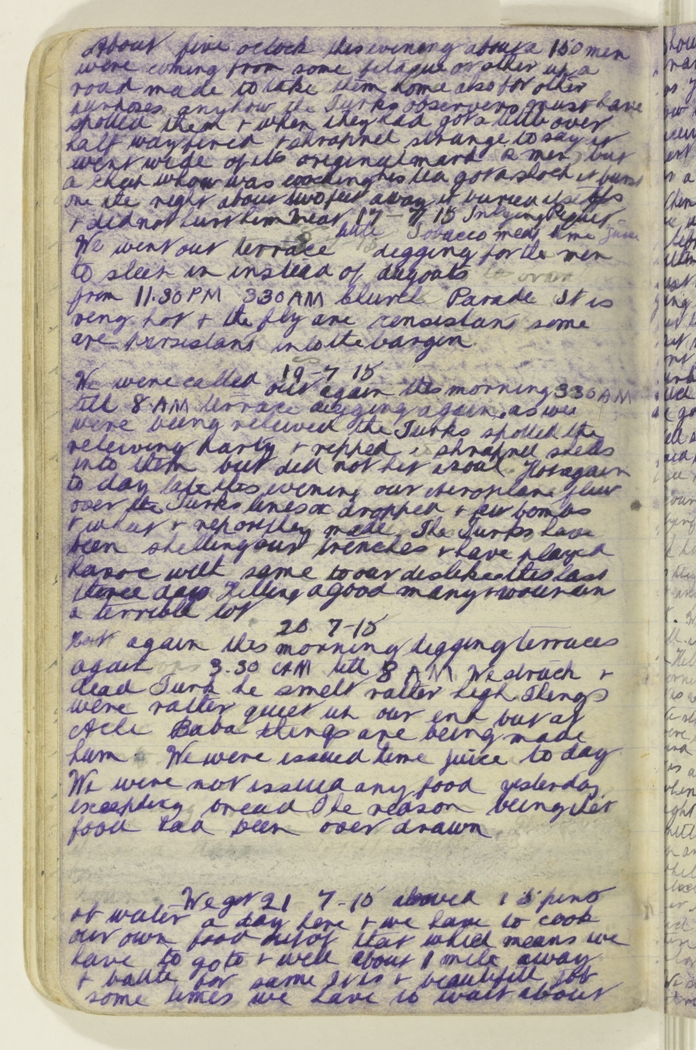 About five oclock this evening about a 150 men
were coming from some fatague or other up a
road made to take them home also for other
purposes anyhow the Turks observers must have
spotted them & when they had got a little over
half way fired & shrapnel strange to say it
went wide of its original mark & men but
a chap whom was cooking his tea got a shock it burst
on the right about two feet away it buried itself
& did not hurt him 17-7-15
We went out terrace digging for the men
to sleep in instead of dugouts
from 11.30 PM 330 AM Church Parade It is
very hot & the fly are consistant some
are persistant into the bargin
19-7-15
We were called out again this morning 330 AM
till 8 AM terrace digging again as we
were being relieved the Turks spotted the
relieving party & ripped shrapnel shells
into them but did not hit a soul Hot again
to day late this evening our aeroplane flew
over the Turks lines & dropped & few bombs
& what & report they made The Turks have
been shelling our trenches & have played
havoc with same to our dislike this last
three days killing a good many & wounding
a terrible lot
20 7-15
Out again this morning digging terraces
again 3.30 AM till 8 AM We struck &
dead Turk he smelt rather high Things
were rather quiet up our end but at
Achi Baba things are being made
hum We were issued lime juice to day
We were not issued any food yesterday
excepting bread The reason being that
food had been over drawn
21 7-15
We get about 1 5 pino
of water a day here & we have to cook
our own food out of that which means we
have to go to & well about 1 mile away
& battle for same It is & beautiful job
some times we have to wait about